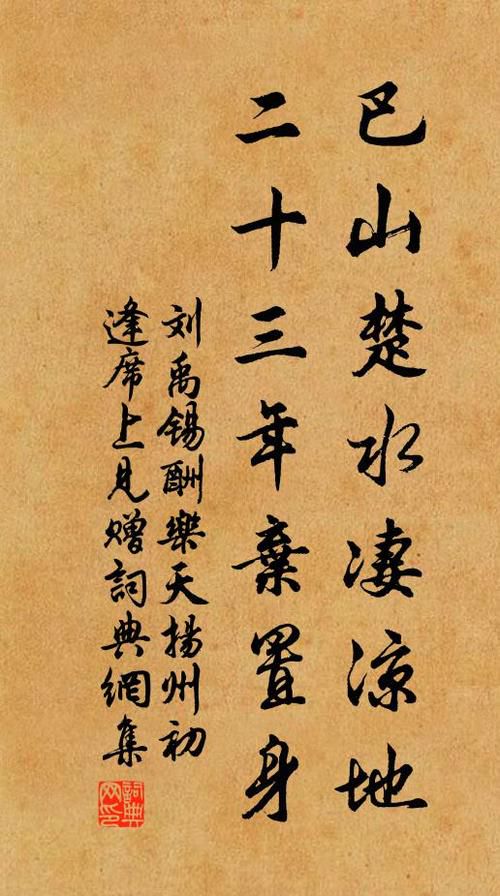 巴山楚水凄凉地
二十三年棄置身
刘禹锡酬樂天揚州初
逢席上見贈詞典網集
詞典
网印